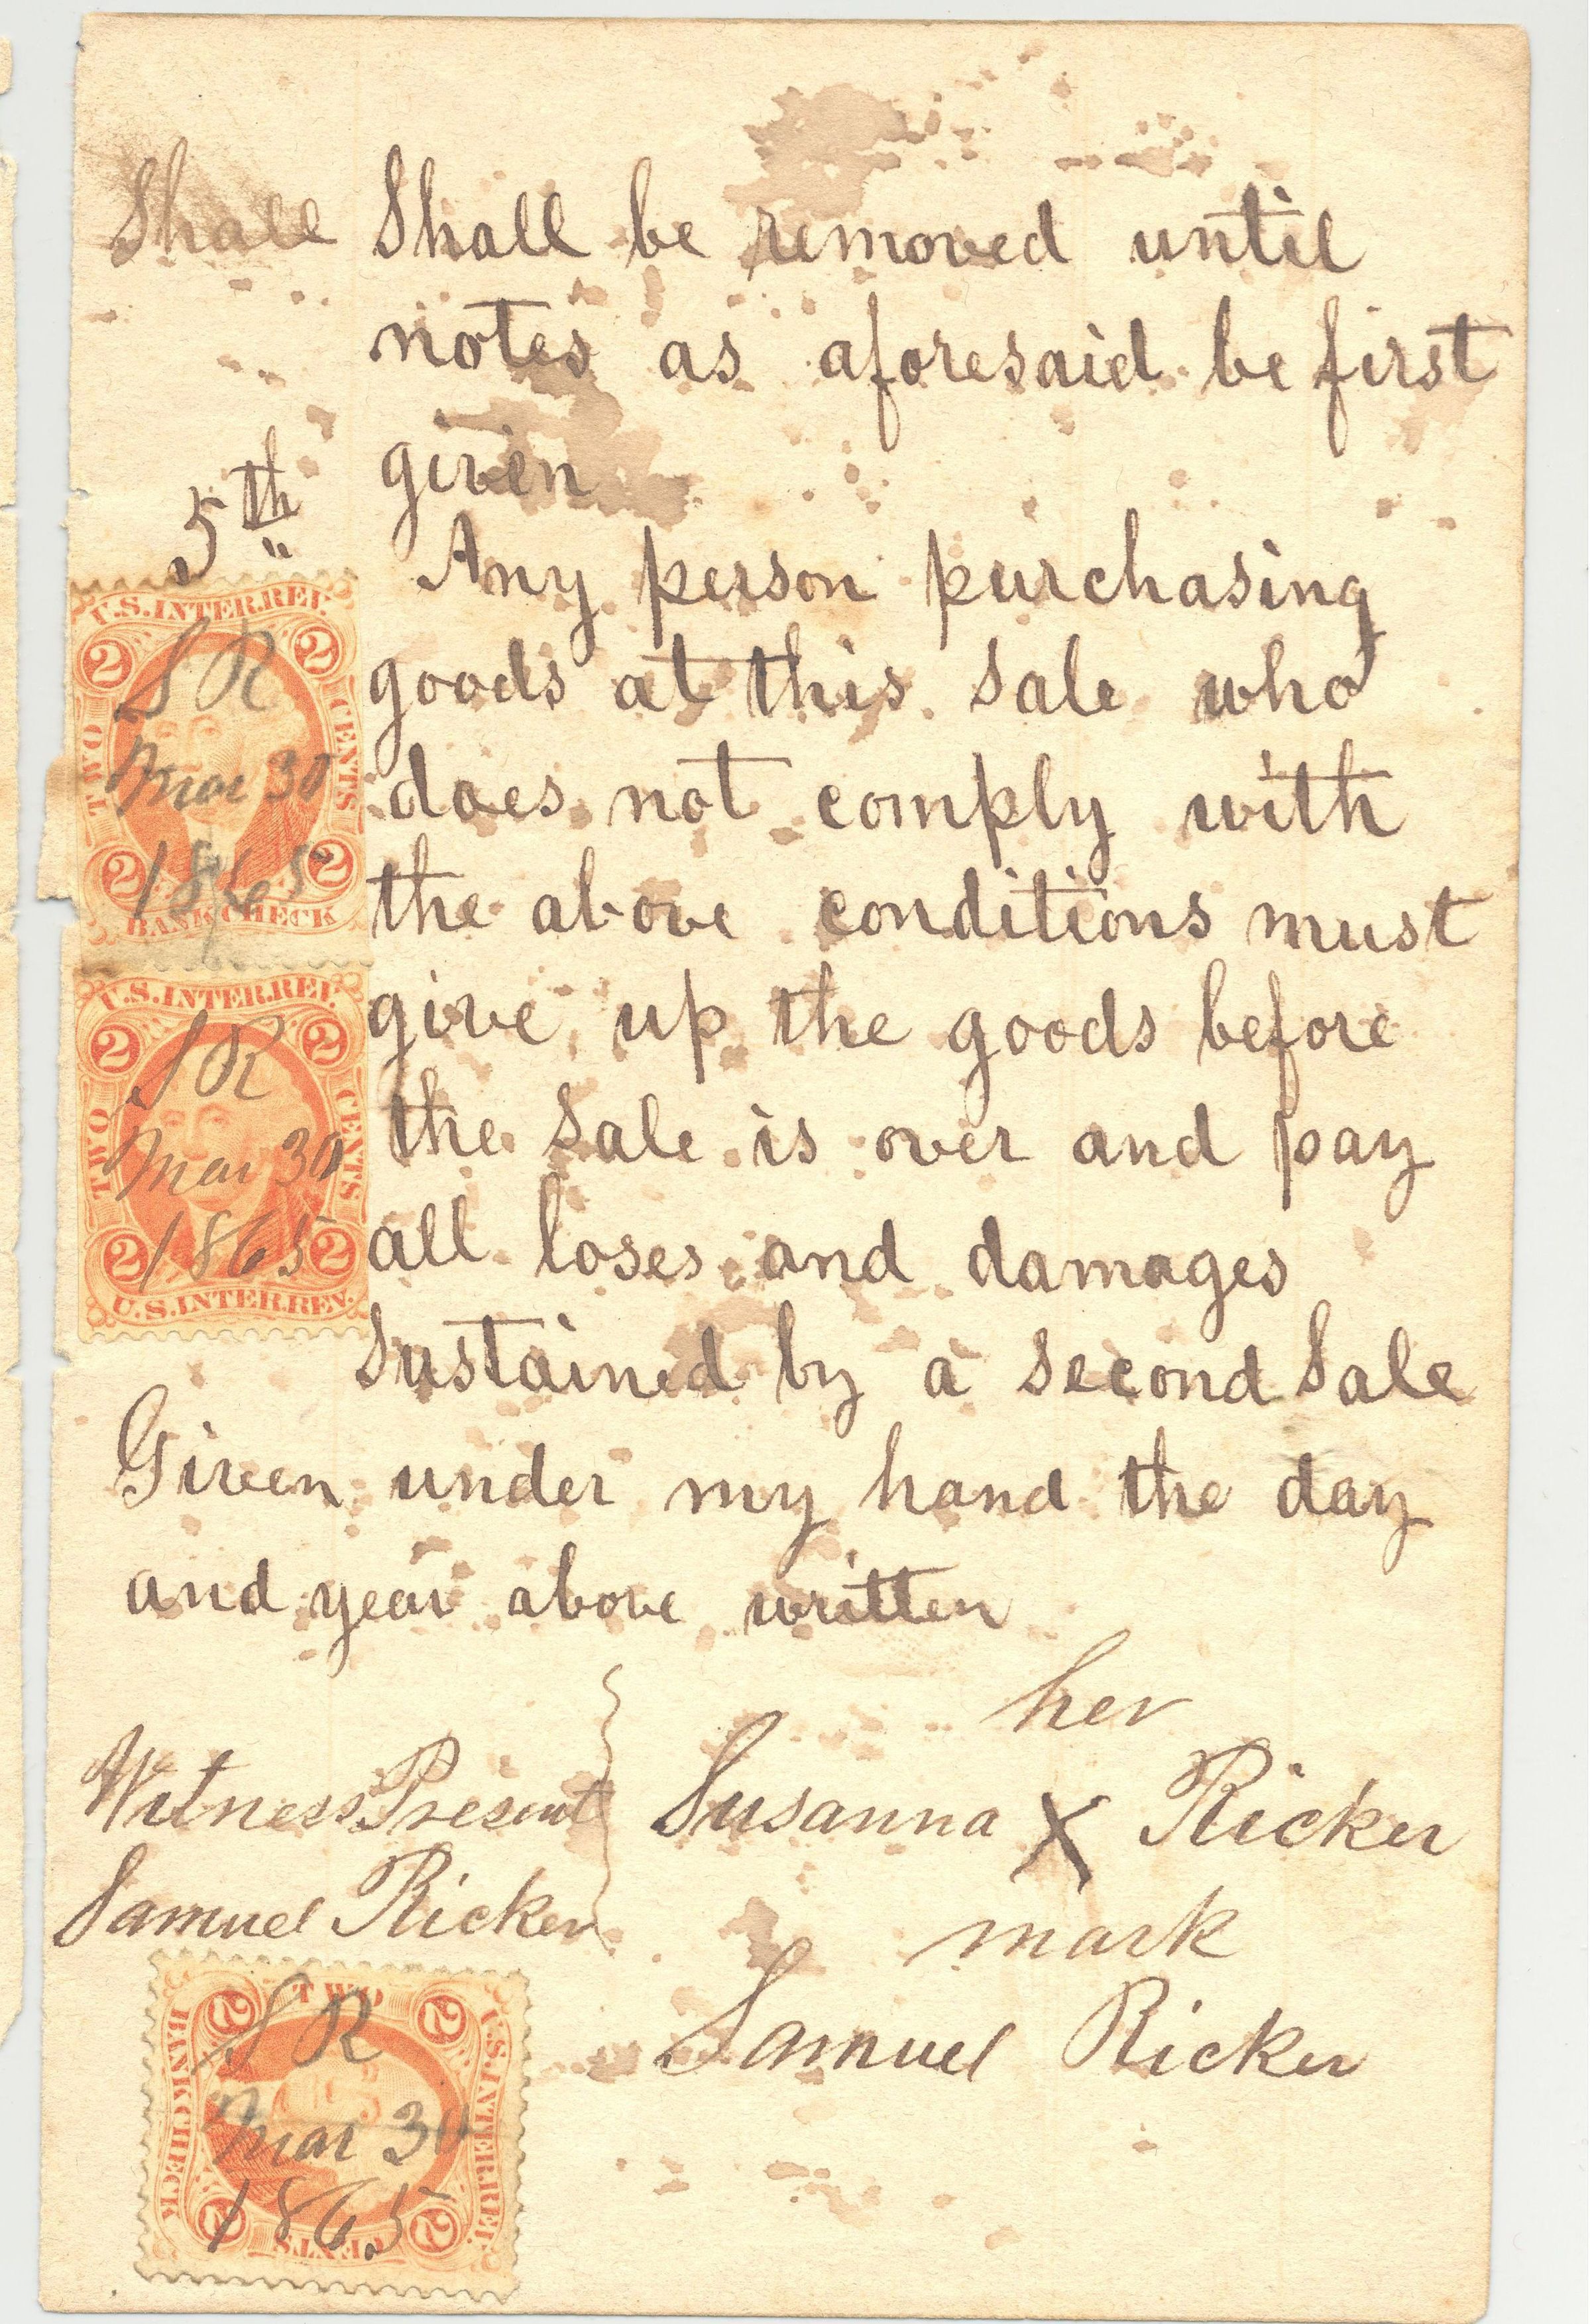 Shall Shall be removed until
notes as aforesaid be first
given
5th Any person purchasing
goods at this sale who
does not comply with
the above conditions must
give up the goods before
the sale is over and pay
all loses and damages
sustained by a second sale
Given under my hand the day
and year above written
her
Witness Present Susanna X Ricker
Samuel Ricker mark
Samuel Ricker
U.S. INTER. REV.
2 2
S R
TWO CENTS
Mar 30
1865
2 2
BANK CHECK
U.S. INTER. REV.
2 2
S R
TWO CENTS
Mar 30
1865
2 2
U.S. INTER. REV.
TWO
2 2
S R
BANK CHECK U.S. INTER. REV.
Mar 30
1865
2 2
CENTS